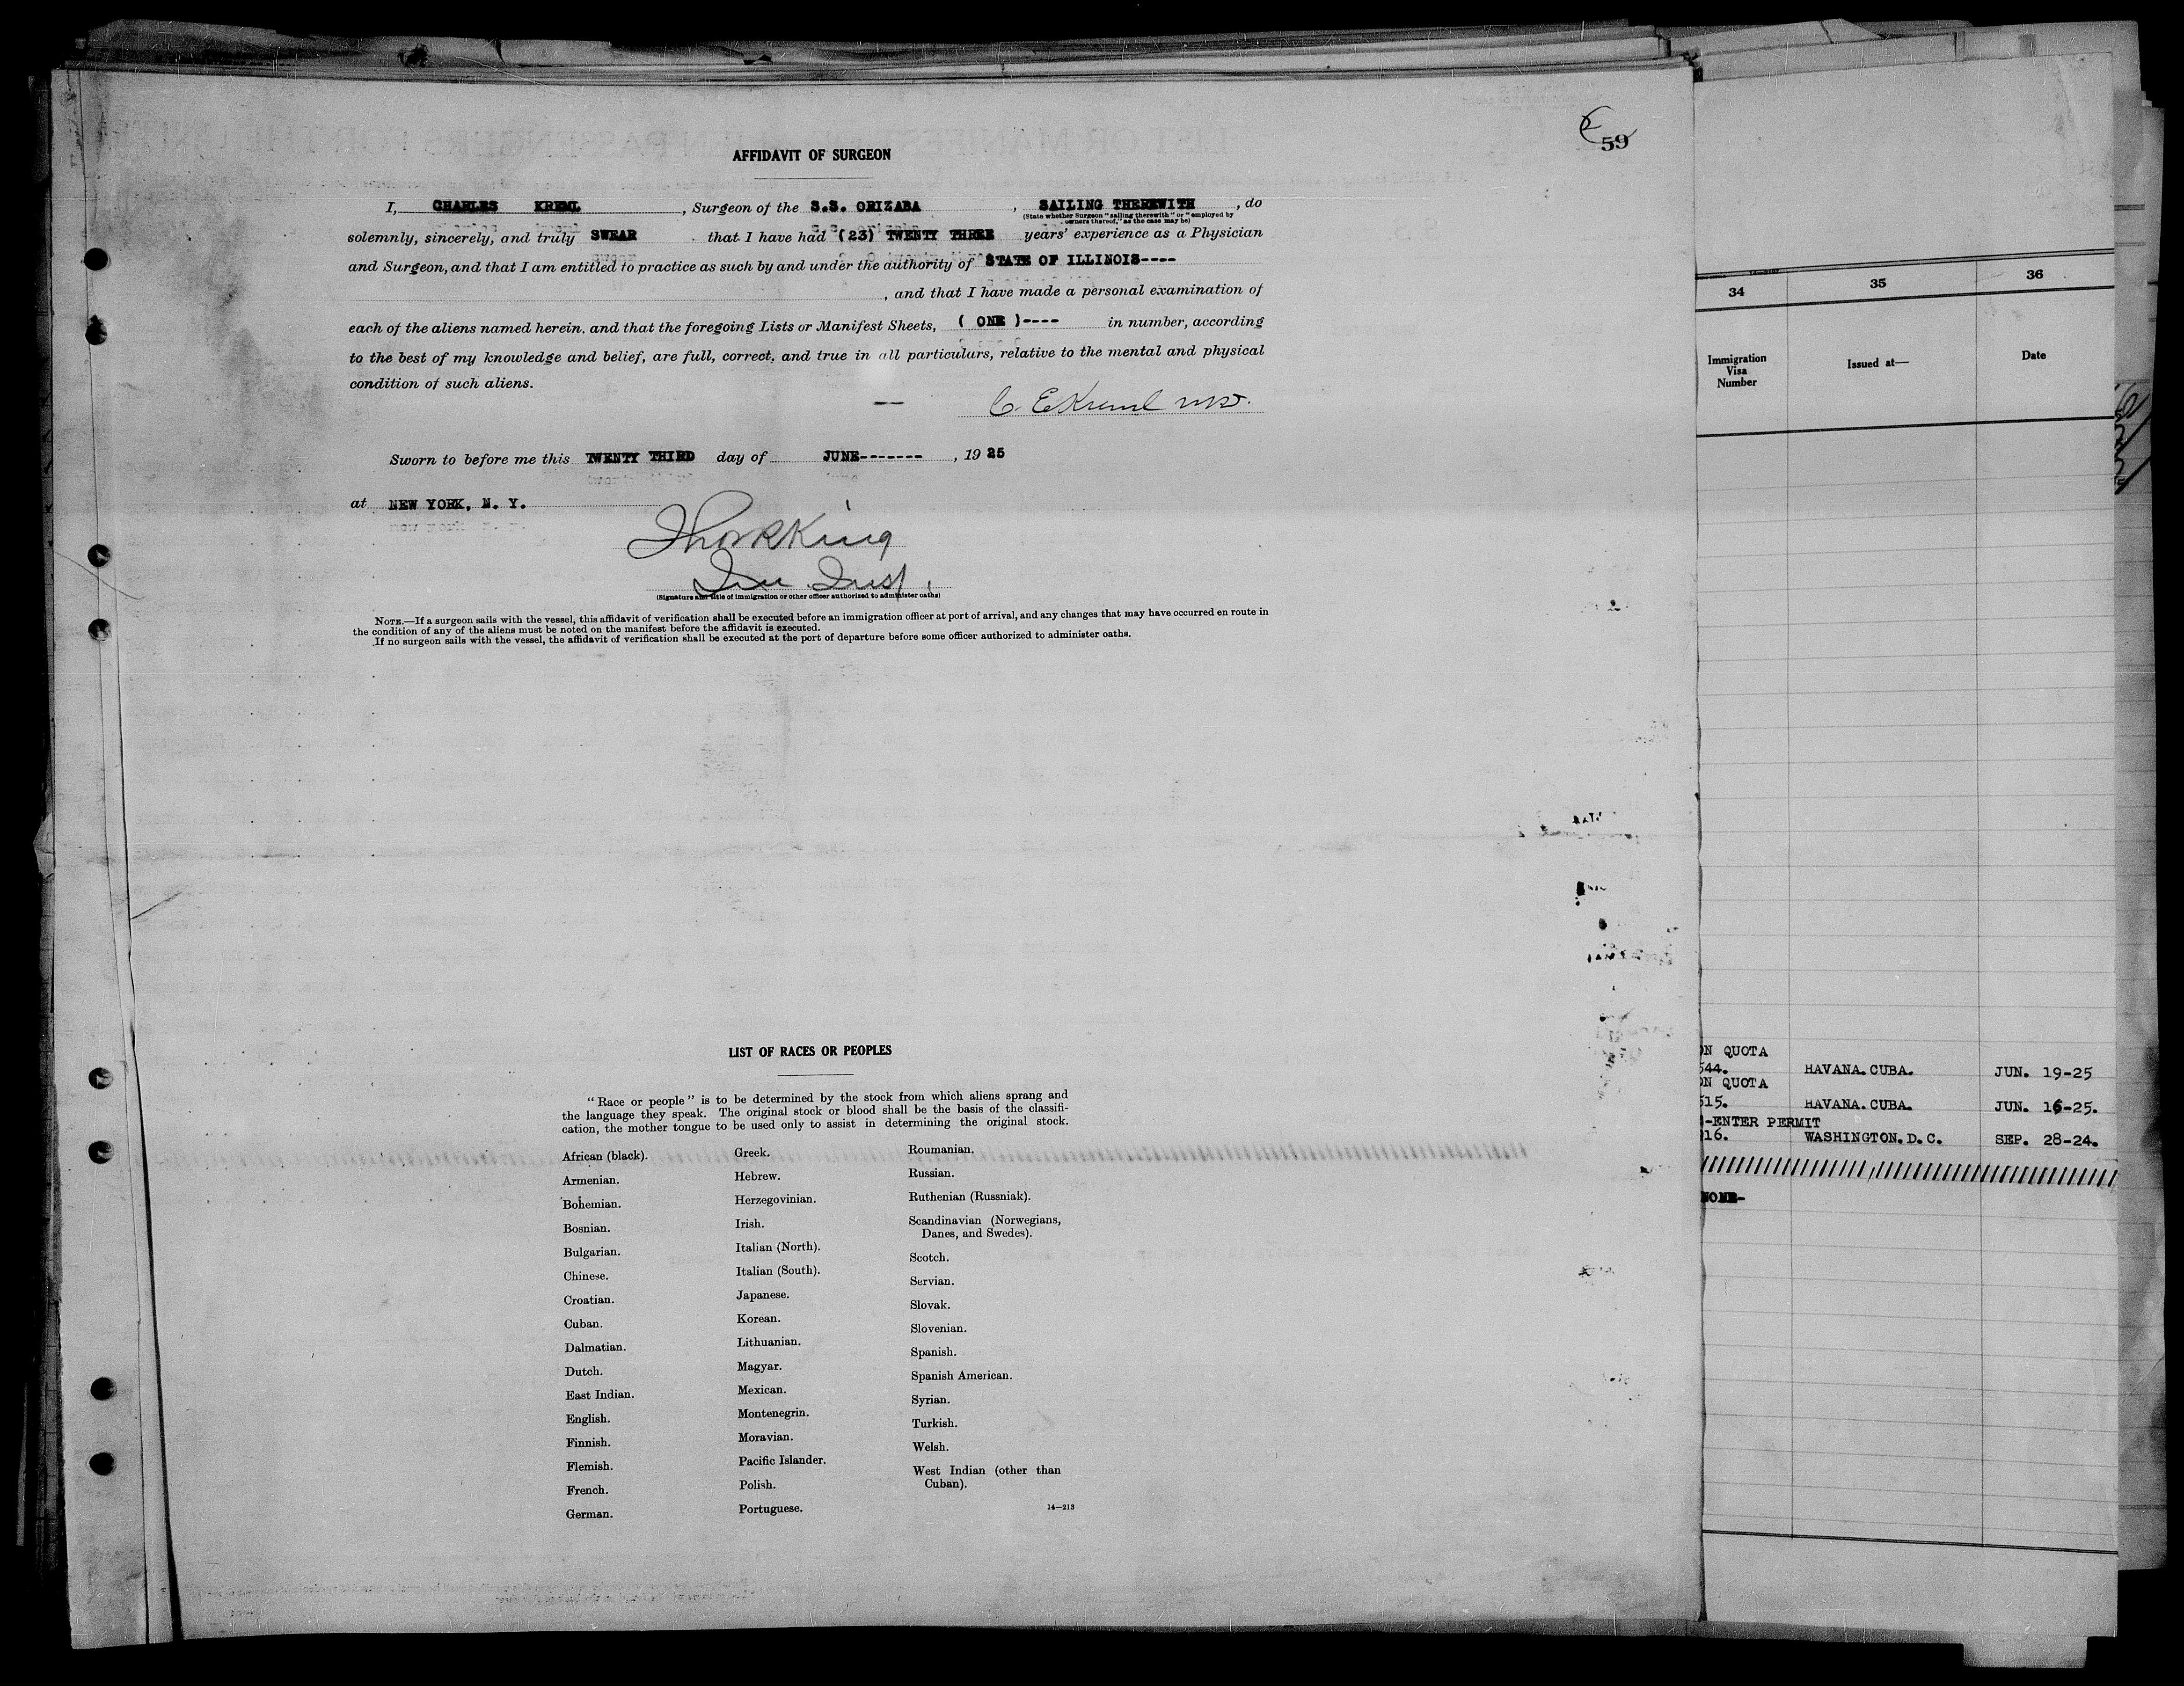 59
AFFIDAVIT OF SURGEON
I, CHARLES KREML, Surgeon of the S.S. ORIZABA, SAILING THEREWITH, do
(State whether Surgeon "sailing therewith" or "employed by
owners thereof," as the case may be)
solemnly, sincerely, and truly SWEAR that I have had (23) TWENTY THREE years' experience as a Physician
and Surgeon, and that I am entitled to practice as such by and under the authority of STATE OF ILLINOIS----
, and that I have made a personal examination of
each of the aliens named herein, and that the foregoing Lists or Manifest Sheets, ( ONE )---- in number, according
to the best of my knowledge and belief, are full, correct, and true in all particulars, relative to the mental and physical
condition of such aliens.
C. E Kreml MD.
Sworn to before me this TWENTY THIRD day of JUNE-------, 19 25
at NEW YORK, N. Y.
King
Imm. Insp.
(Signature and title of immigration or other officer authorized to administer oaths)
NOTE.—If a surgeon sails with the vessel, this affidavit of verification shall be executed before an immigration officer at port of arrival, and any changes that may have occurred en route in
the condition of any of the aliens must be noted on the manifest before the affidavit is executed.
If no surgeon sails with the vessel, the affidavit of verification shall be executed at the port of departure before some officer authorized to administer oaths.
LIST OF RACES OR PEOPLES
"Race or people" is to be determined by the stock from which aliens sprang and
the language they speak. The original stock or blood shall be the basis of the classifi-
cation, the mother tongue to be used only to assist in determining the original stock.
African (black).
Armenian.
Bohemian.
Bosnian.
Bulgarian.
Chinese.
Croatian.
Cuban.
Dalmatian.
Dutch.
East Indian.
English.
Finnish.
Flemish.
French.
German.
Greek.
Hebrew.
Herzegovinian.
Irish.
Italian (North).
Italian (South).
Japanese.
Korean.
Lithuanian.
Magyar.
Mexican.
Montenegrin.
Moravian.
Pacific Islander.
Polish.
Portuguese.
Roumanian.
Russian.
Ruthenian (Russniak).
Scandinavian (Norwegians,
Danes, and Swedes).
Scotch.
Servian.
Slovak.
Slovenian.
Spanish.
Spanish American.
Syrian.
Turkish.
Welsh.
West Indian (other than
Cuban).
14—213
34 35 36
Immigration
Visa
Number
Issued at—
Date
ON QUOTA
544. HAVANA.CUBA. JUN. 19-25
ON QUOTA
515. HAVANA.CUBA. JUN. 16-25.
-ENTER PERMIT
16. WASHINGTON.D.C. SEP. 28-24.
NONE-